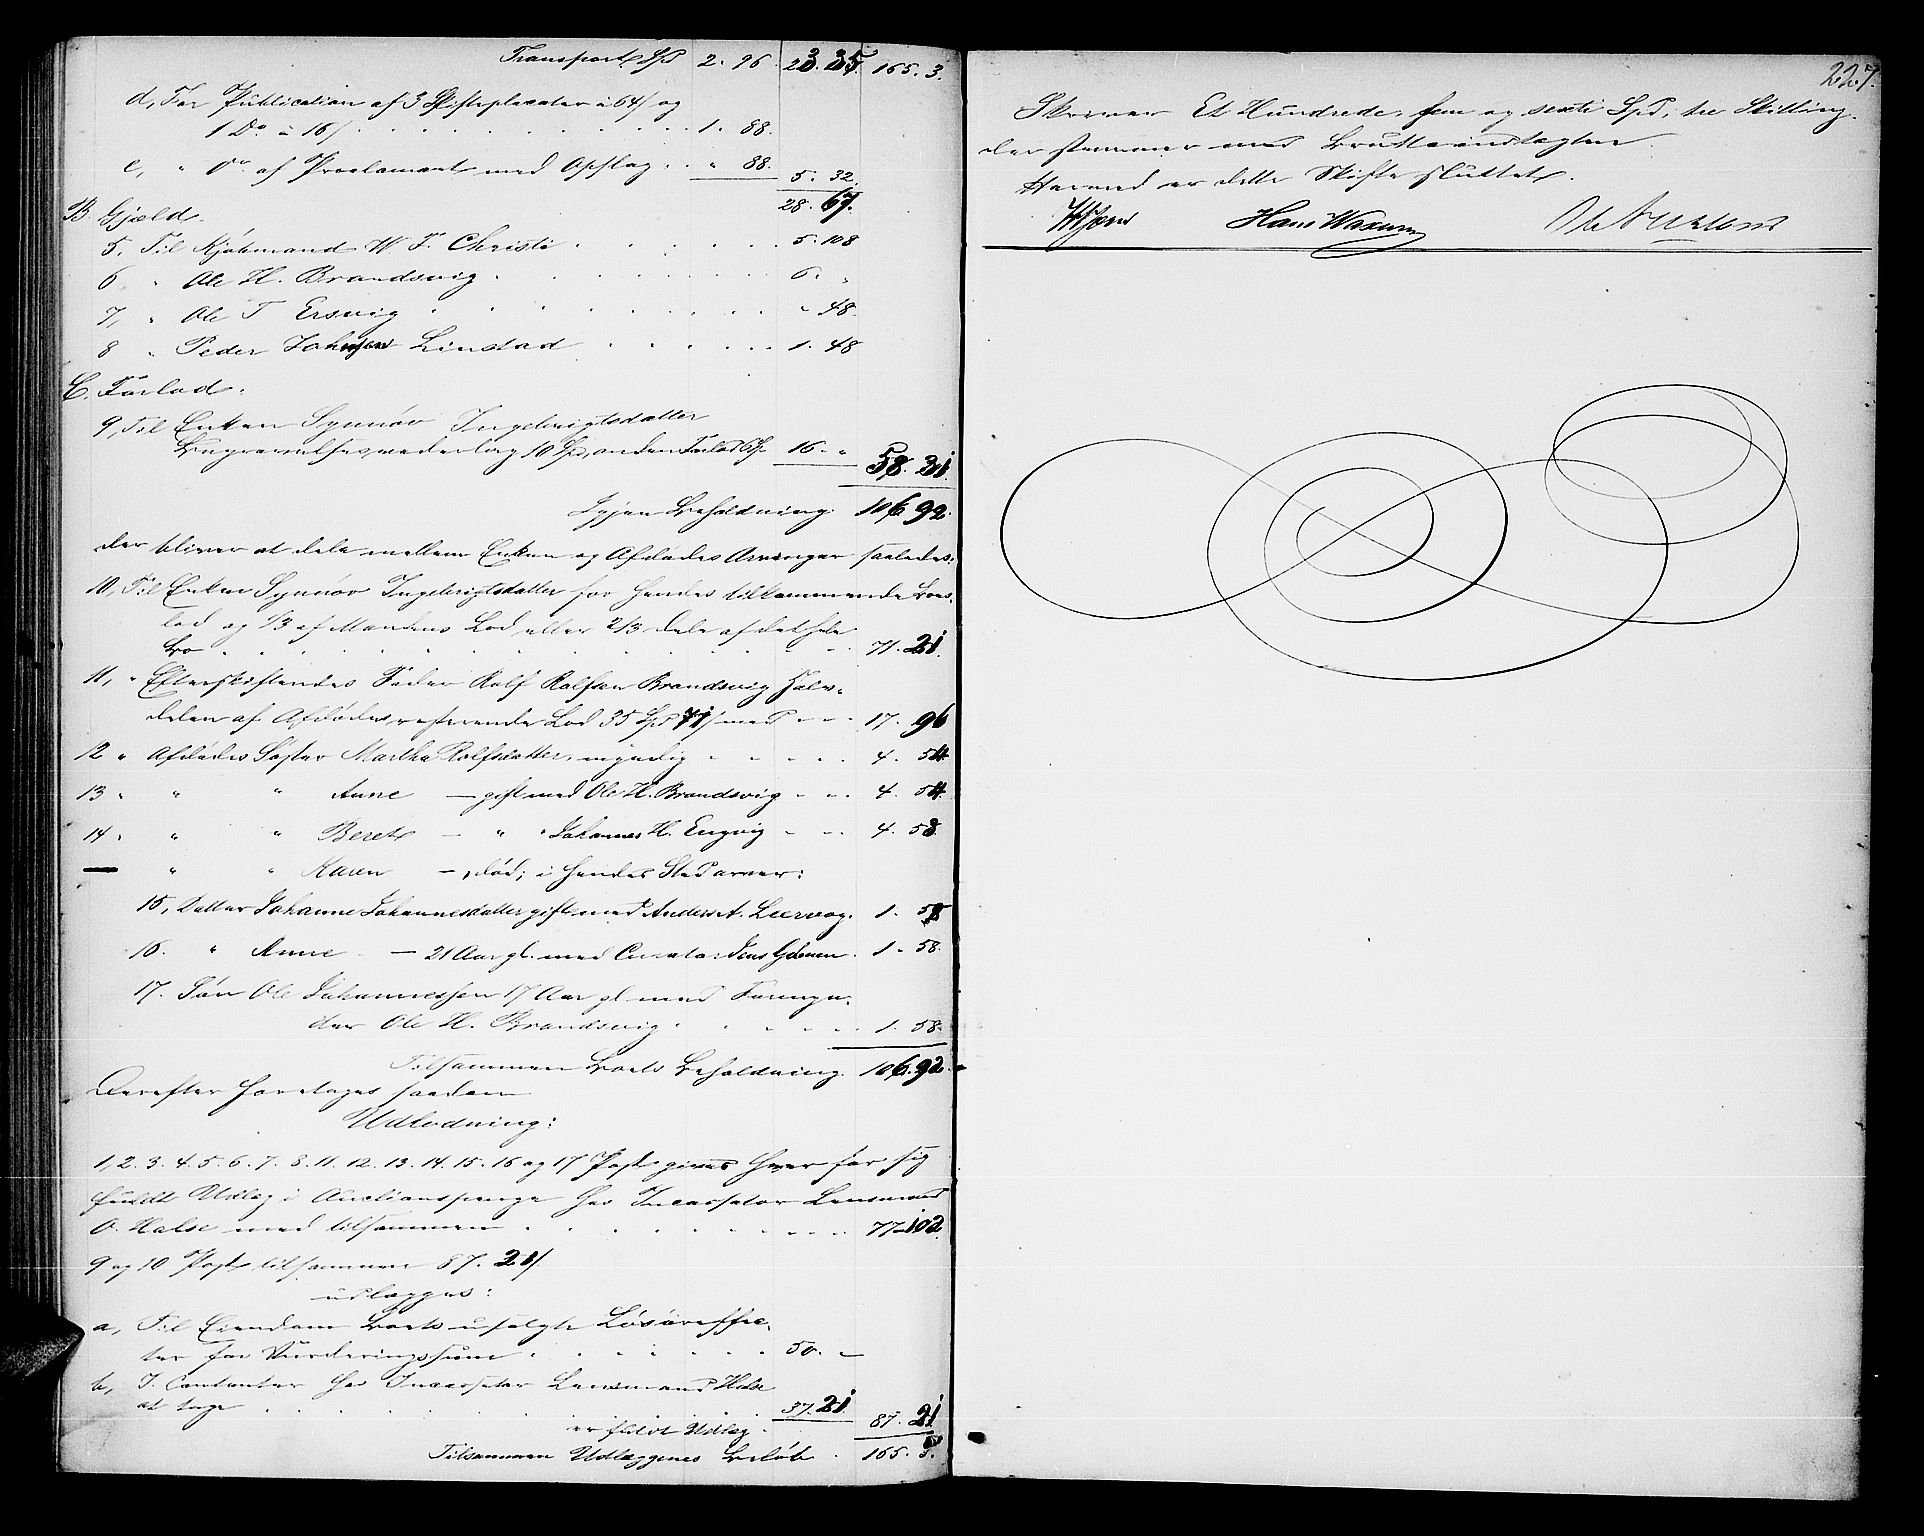 Transport Spd 2. 96. 23. 35. 165. 3.
d, For Publication af 3 Skifteplacater à 64 s og
1 Do à 16 s . . . 1. 88.
e, " Do af Proclamant med Opslag . . " 88. 5. 32.
28. 67.
B Gjæld.
5. Til Kjøbmand W. F. Christi . . . 5. 108
6 " Ole H. Brandsvig . . . 6. "
7, " Ole T Ersvig . . . " 48.
8 " Peder Johnsen Linstad . . . 1. 48
C. Forlod.
9, Til Enken Synnøv Ingebrigtsdatter
Begravelsesvederlag 10 Spd, anden Forlod 6 Sp. 16. " 58. 31.
Igjen Beholdning. 106. 92.
der bliver at dele mellem Enken og Afdødes Arvinger saaledes:
10, Til Enken Synnøv Ingebrigtsdatter for hendes tilkommende Boes-
lod og 1/3 af Mandens Lod eller 2/3 dele af det hele
Bo . . . 71. 21.
11, " Efterskiftendes Fader Rolf Rolfsen Brandsvig Halv-
delen af Afdødes resterende Lod 35 Spd 71 s med . . . 17. 96
12 " Afdødes Søster Martha Rolfsdatter, myndig . . . 4. 54.
13 " " " Anne — gift med Ole H. Brandsvig . . . 4. 54.
14 " " " Beret — " " Johannes H. Engvig . . . 4. 53.
— " " Karen — , død; i hendes Sted arver:
15, Datter Johanne Johannesdatter gift med Anders A. Lervog. 1. 58
16. " Anne — 21 Aar gl. med Curator Jens . 1. 58.
17. Søn Ole Johannessen 17 Aar gl med Formyn-
der Ole H. Brandsvig . . . 1. 58.
Tilsammen Boets Beholdning. 106. 92.
Derefter foretages saadan
Udlodning:
1, 2. 3. 4. 5. 6. 7. 8. 11. 12. 13. 14. 15. 16 og 17 Post gives hver for sig
fuldt Udlæg i Auctionspenge hos Incassator Lensmand
O. Halse med tilsammen . . . 77. 102.
9 og 10 Post tilsammen 87. 21 s
udlægges:
a, Til Eiendom Boets usolgte Løsøreffec-
ter for Vurderingssum . . . 50. "
b, I Contanter hos Incassator Lensmand Halse
at tage . . . 37. 21. 87. 21
er fuldt Udlæg.
Tilsammen Udlæggenes Beløb . 165. 3.
227.
Skriver Et Hundrede, fem og sexti Spd, tre Skilling.
der stemmer med Bruttoindtægten.
Hermed er dette Skifte sluttet.
Hans Waxum